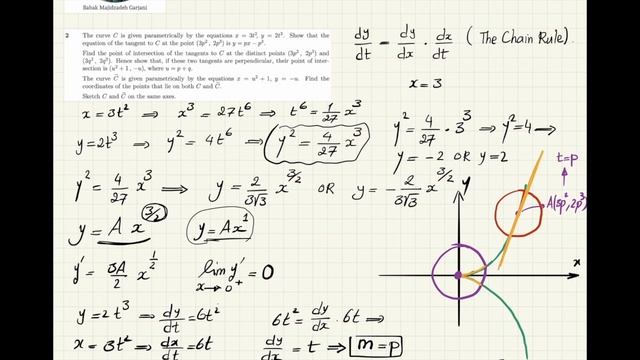 Babak Majidzadeh Garjani
2 The curve C is given parametrically by the equations x = 3t², y = 2t³. Show that the
equation of the tangent to C at the point (3p², 2p³) is y = px − p³.
Find the point of intersection of the tangents to C at the distinct points (3p², 2p³) and
(3q², 2q³). Hence show that, if these two tangents are perpendicular, their point of inter-
section is (u² + 1, −u), where u = p + q.
The curve C̃ is given parametrically by the equations x = u² + 1, y = −u. Find the
coordinates of the points that lie on both C and C̃.
Sketch C and C̃ on the same axes.
dy/dt = dy/dx · dx/dt (The Chain Rule).
x = 3
x = 3t² ⟹ x³ = 27t⁶ ⟹ t⁶ = 1/27 x³
y = 2t³ ⟹ y² = 4t⁶ ⟹ y² = 4/27 x³
y² = 4/27 · 3³ ⟹ y² = 4 ⟹
y = −2 OR y = 2
y² = 4/27 x³ ⟹ y = 2/3√3 x^3/2 OR y = − 2/3√3 x^3/2
y = A x^3/2 y = Ax¹
y' = 3A/2 x^1/2 lim x→0⁺ y' = 0
y = 2t³ ⟹ dy/dt = 6t²
x = 3t² ⟹ dx/dt = 6t
6t² = dy/dx · 6t ⟹
dy/dx = t ⟹ m = p
y
t = p
A(3p², 2p³)
x